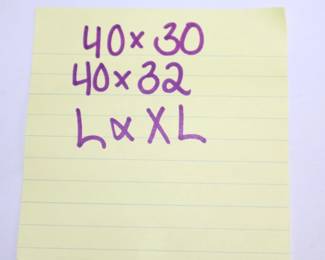 40 x 30
40 x 32
L & XL